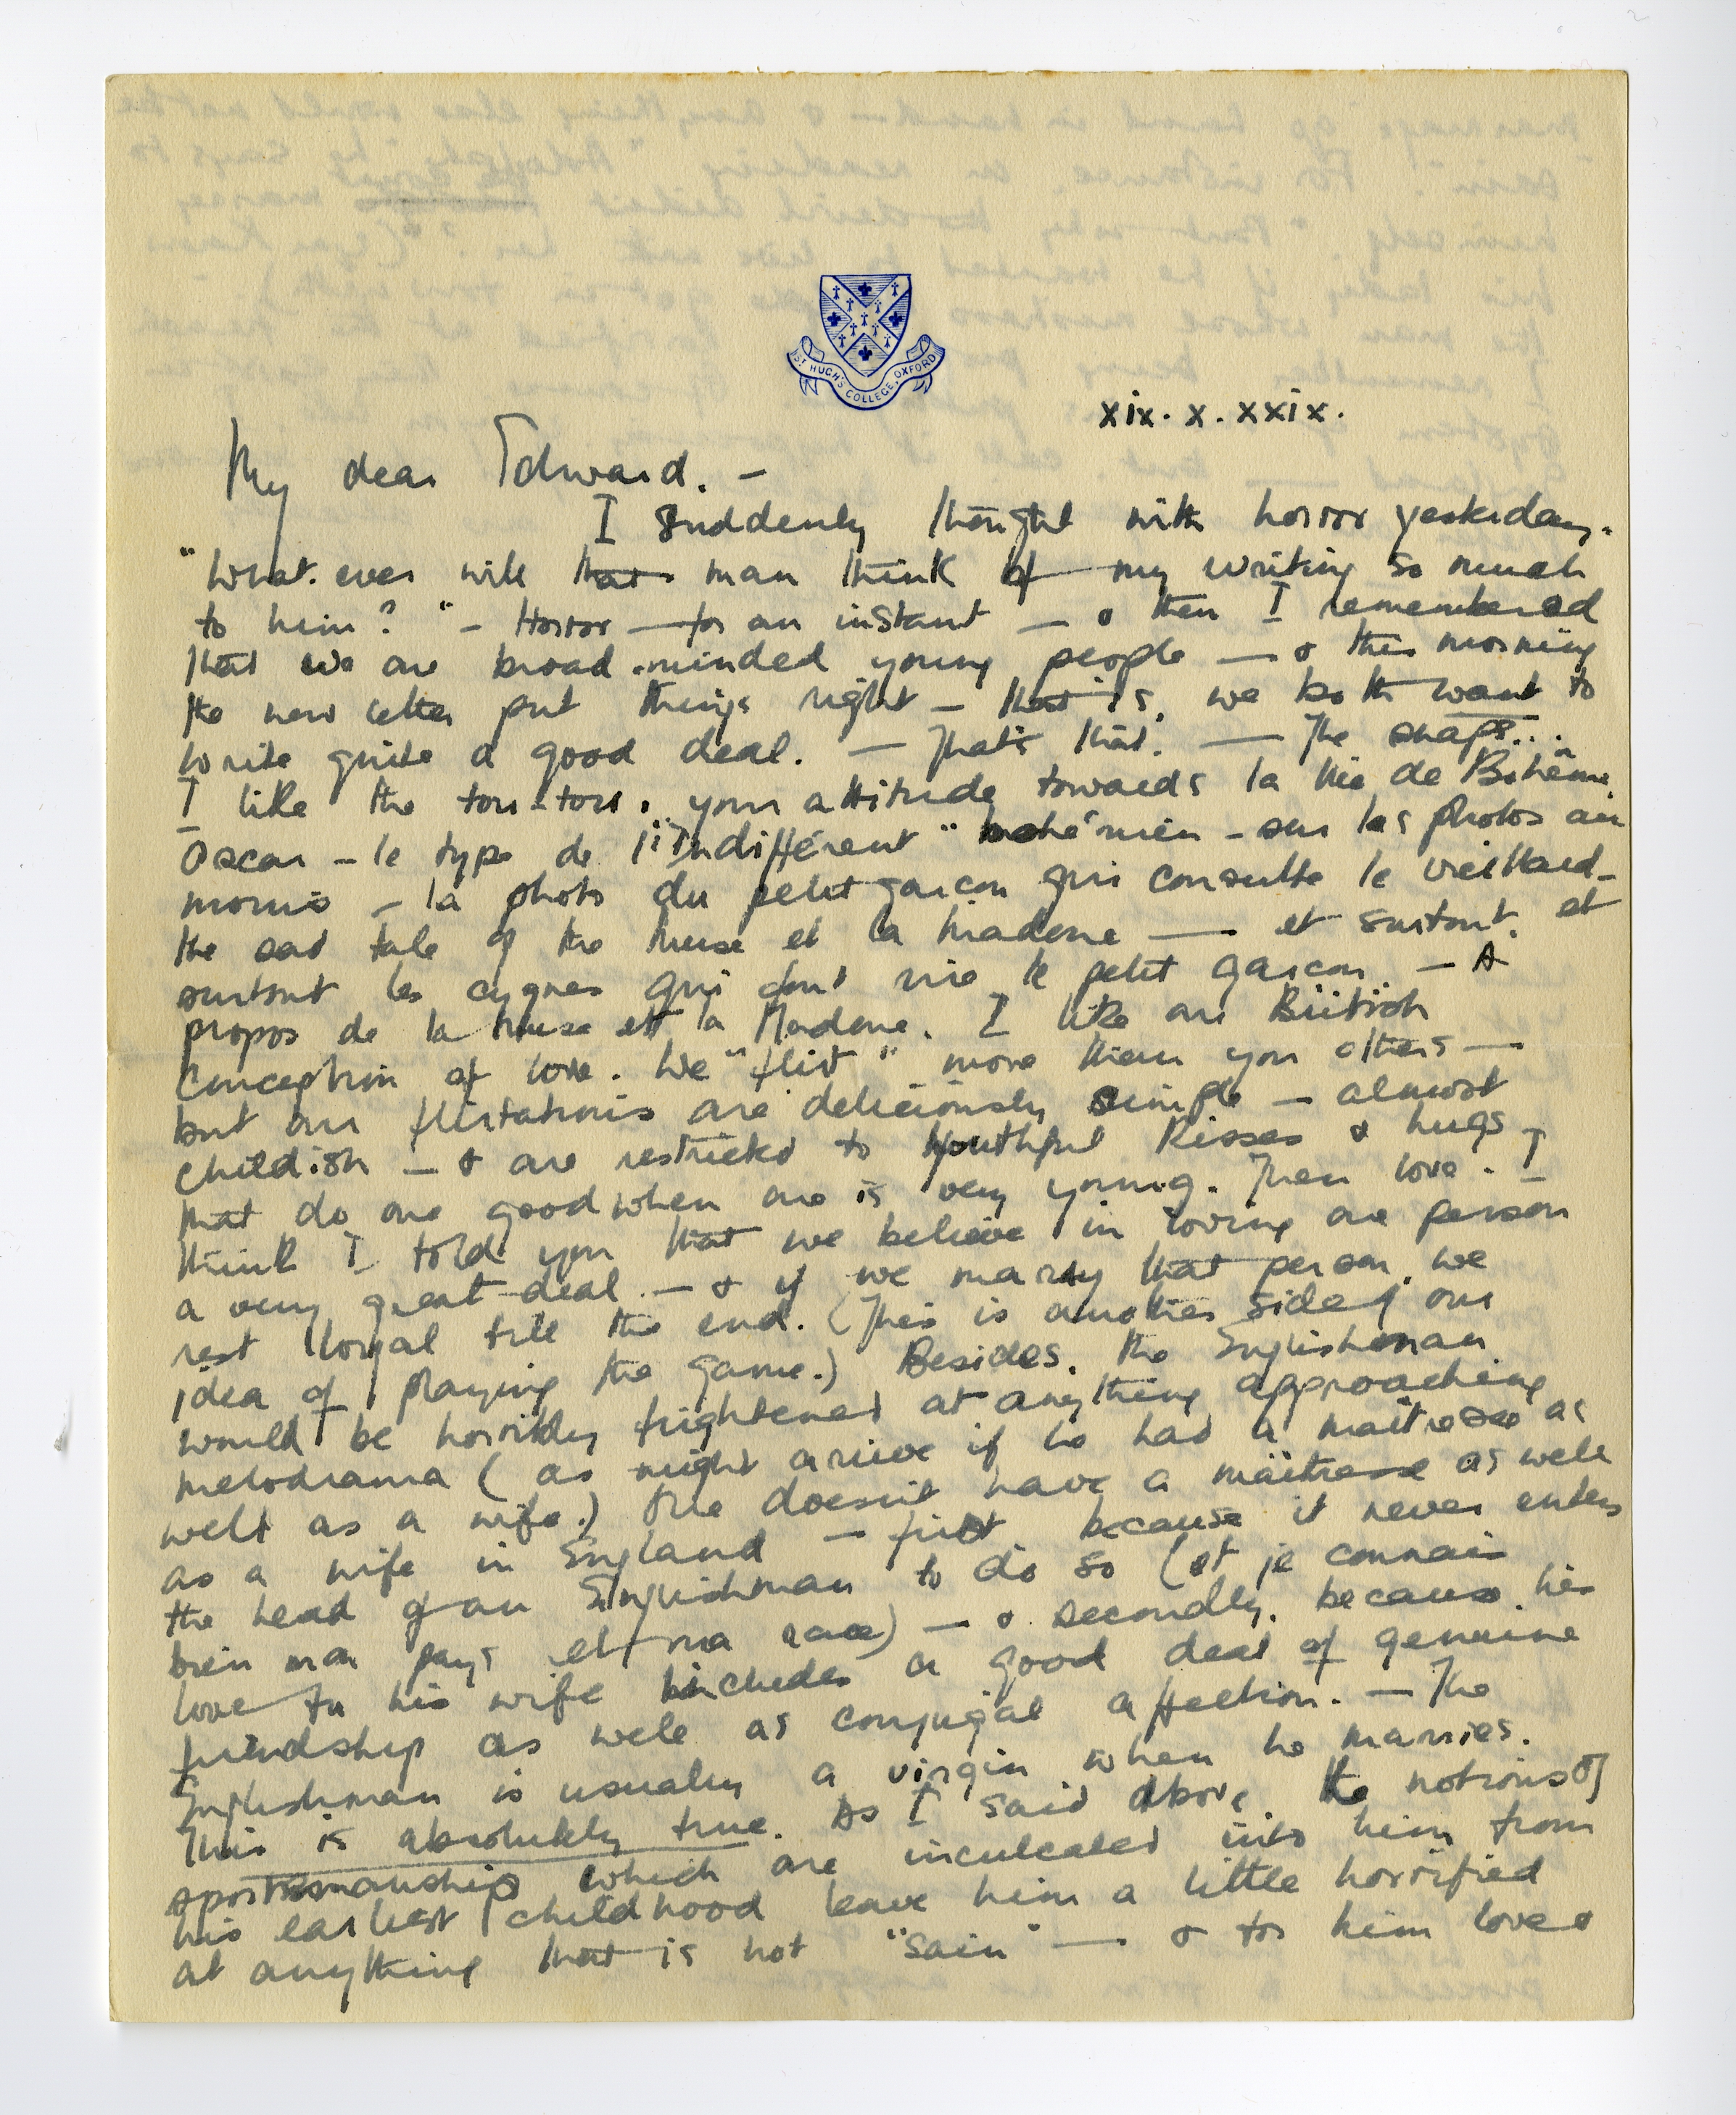 ST HUGH'S COLLEGE, OXFORD
xix. x. xxix.
My dear Edward. —
I suddenly thought with horror yesterday.
"What. ever will that man think of my writing so much
to him?" — Horror — for an instant — & then I remembered
that we are broad-minded young people — & this morning
the new letter put things right — that is, we both want to
write quite a good deal. — That's that. — The snaps...
I like the tou-tou. your attitude towards la Vie de Bohême.
Oscar — le type de l'"Indifférent" bohémien — sur les photos au
moins — la photo du petit garçon qui consulte le vieillard —
the sad tale of the Muse et la Madone — et surtout, et
surtout les cygnes qui font rire le petit garçon. — A
propos de la Muse et la Madone. I like our British
conception of love. We "flirt" more than you others —
but our flirtations are deliciously simple — almost
childish — & are restricted to youthful kisses & hugs
that do one good when one is very young. Then love. I
think I told you that we believe in loving one person
a very great deal — & if we marry that person, we
rest loyal till the end. (This is another side of our
idea of playing the game.) Besides, the Englishman
would be horribly frightened at anything approaching
melodrama (as might arrive if he had a maitresse as
well as a wife.) One doesn't have a maitresse as well
as a wife in England — first because it never enters
the head of an Englishman to do so (et je connais
bien mon pays et ma race) — & secondly, because his
love for his wife includes a good deal of genuine
friendship as well as conjugal affection. — The
Englishman is usually a virgin when he marries.
This is absolutely true. As I said above, the notions of
sportsmanship which are inculcated into him from
his earliest childhood leave him a little horrified
at anything that is not "sain" — & for him love &